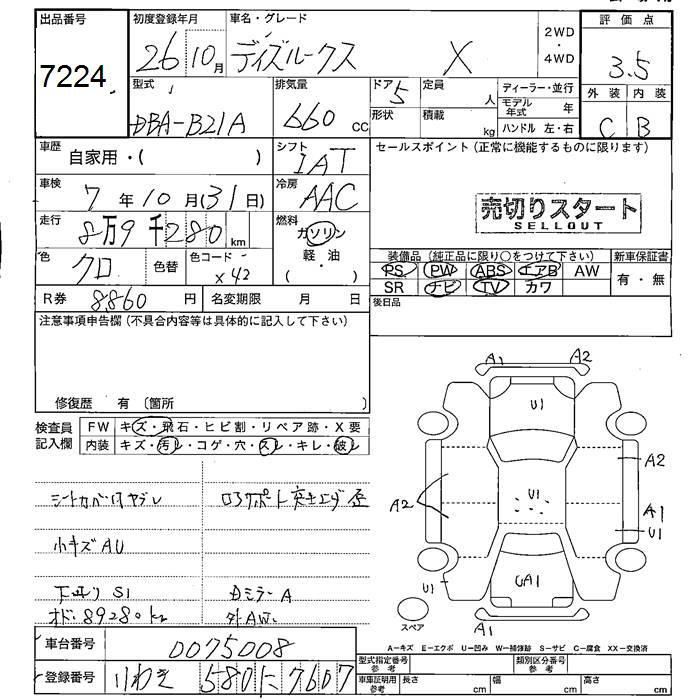 出品番号 7224
初度登録年月 26 10月
車名・グレード ディズルークス X
2WD・4WD
評価点 3.5
外装 C 内装 B
型式 DBA-B21A
排気量 660 CC
ドア 5
形状
定員 人
積載 kg
ディーラー・並行
モデル年式 年
ハンドル 左・右
車歴 自家用・( )
シフト IAT
セールスポイント (正常に機能するものに限ります)
車検 7年10月(31日)
冷房 AAC
売切りスタート
SELLOUT
走行 8万9千280km
燃料 ガソリン・軽油 ( )
色 クロ 色替 色コード X42
装備品 (純正品に限り○をつけて下さい)
PS PW ABS エアB AW
SR ナビ TV カワ
新車保証書 有・無
後日品
R券 8,860円 名変期限 月 日
注意事項申告欄 (不具合内容等は具体的に記入して下さい)
修復歴 有 (箇所 )
検査員記入欄
FW キズ・飛石・ヒビ割・リペア跡・X要
内装 キズ・汚レ・コゲ・穴・スレ・キレ・破レ
シートカバー付ヤブレ
小キズAU
下回りS1
オド:89280km
ロアサポート突き上げ歪
Dミラー A
外AW
A1 A2
U1
A2
U1
A2
A1
U1
U1
UA1
A1
スペア
A-キズ E-エクボ U-凹み W-補修跡 S-サビ C-腐食 XX-交換済
車台番号 0075008
登録番号 いわき 580 に 7607
型式指定番号 参考
類別区分番号 参考
車庫証明用 参考 長さ cm 幅 cm 高さ cm